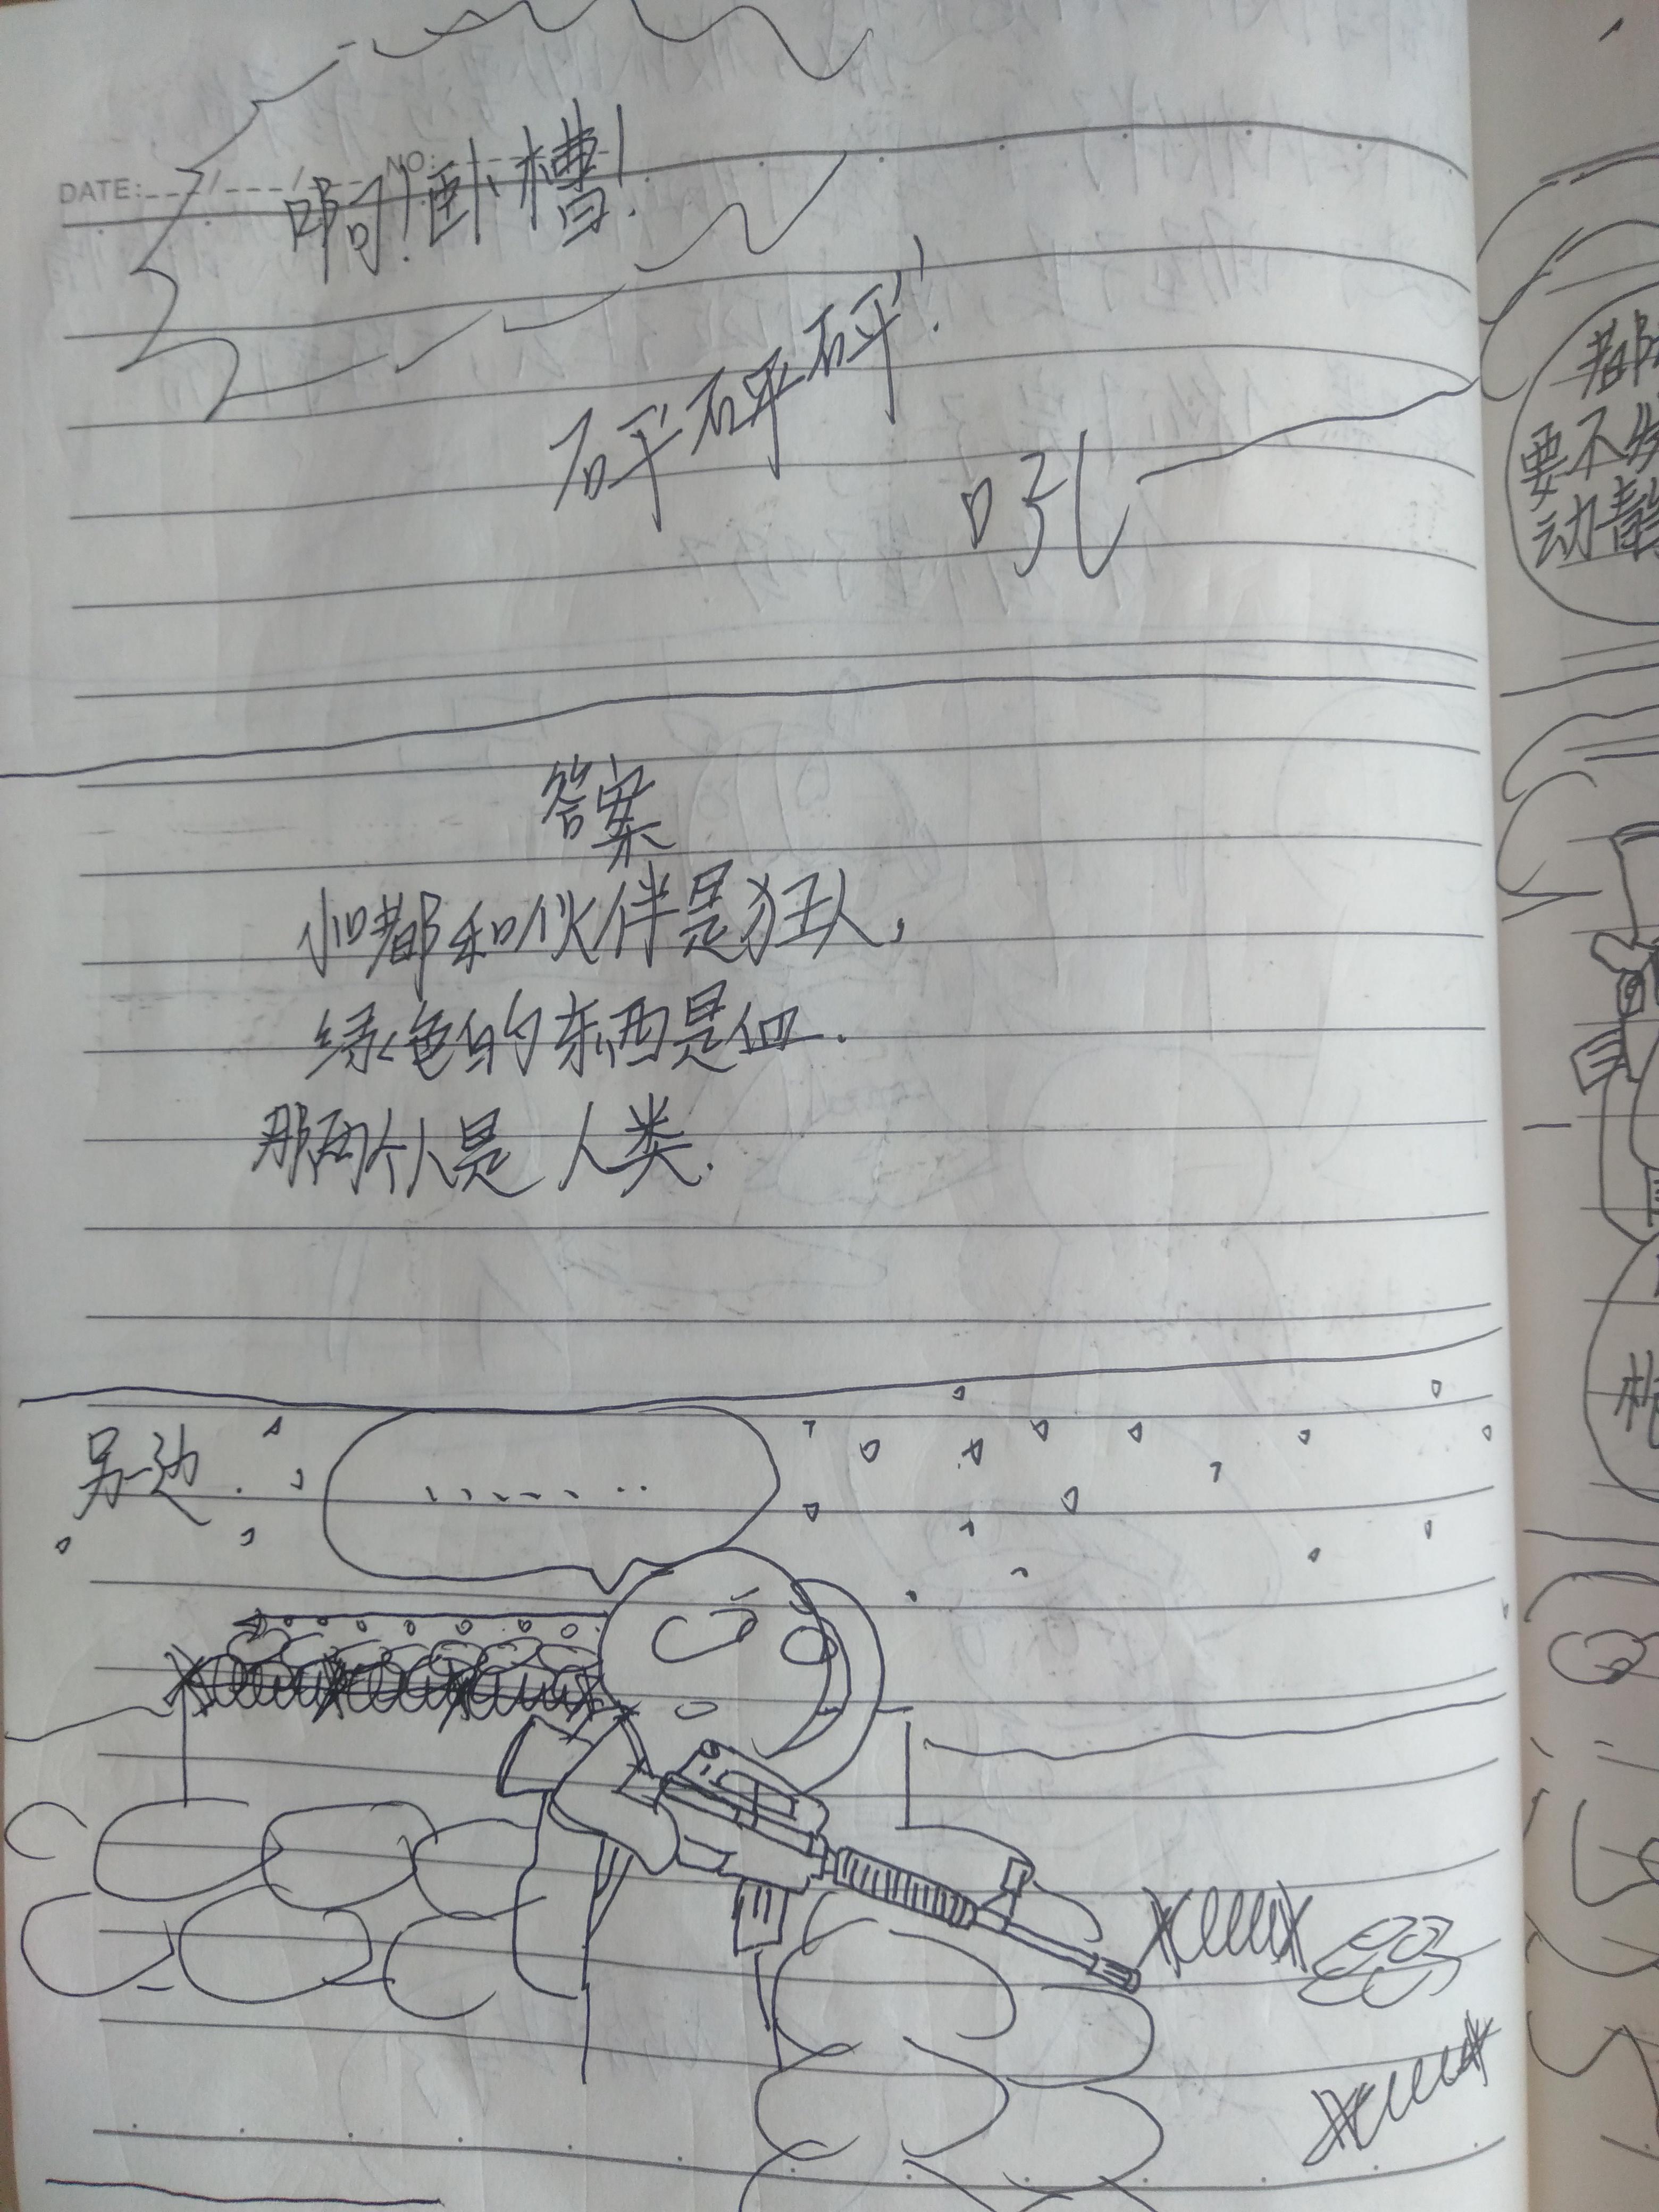 DATE:___/___/___ NO:
啊!卧槽!
砰砰砰!
吼
答案
小都和伙伴是狂人,
绿色的东西是血.
那两个人是 人类.
另一边.
.........
都
要不
动静